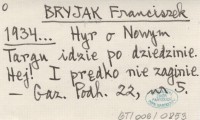 0
BRYJAK Franciszek
1934... Hyr o Nowym
Targu idzie po dziedzinie.
Hej! I prędko nie zaginie.
— Gaz. Podh. 22, nr 5.
BTT 009 / 0253